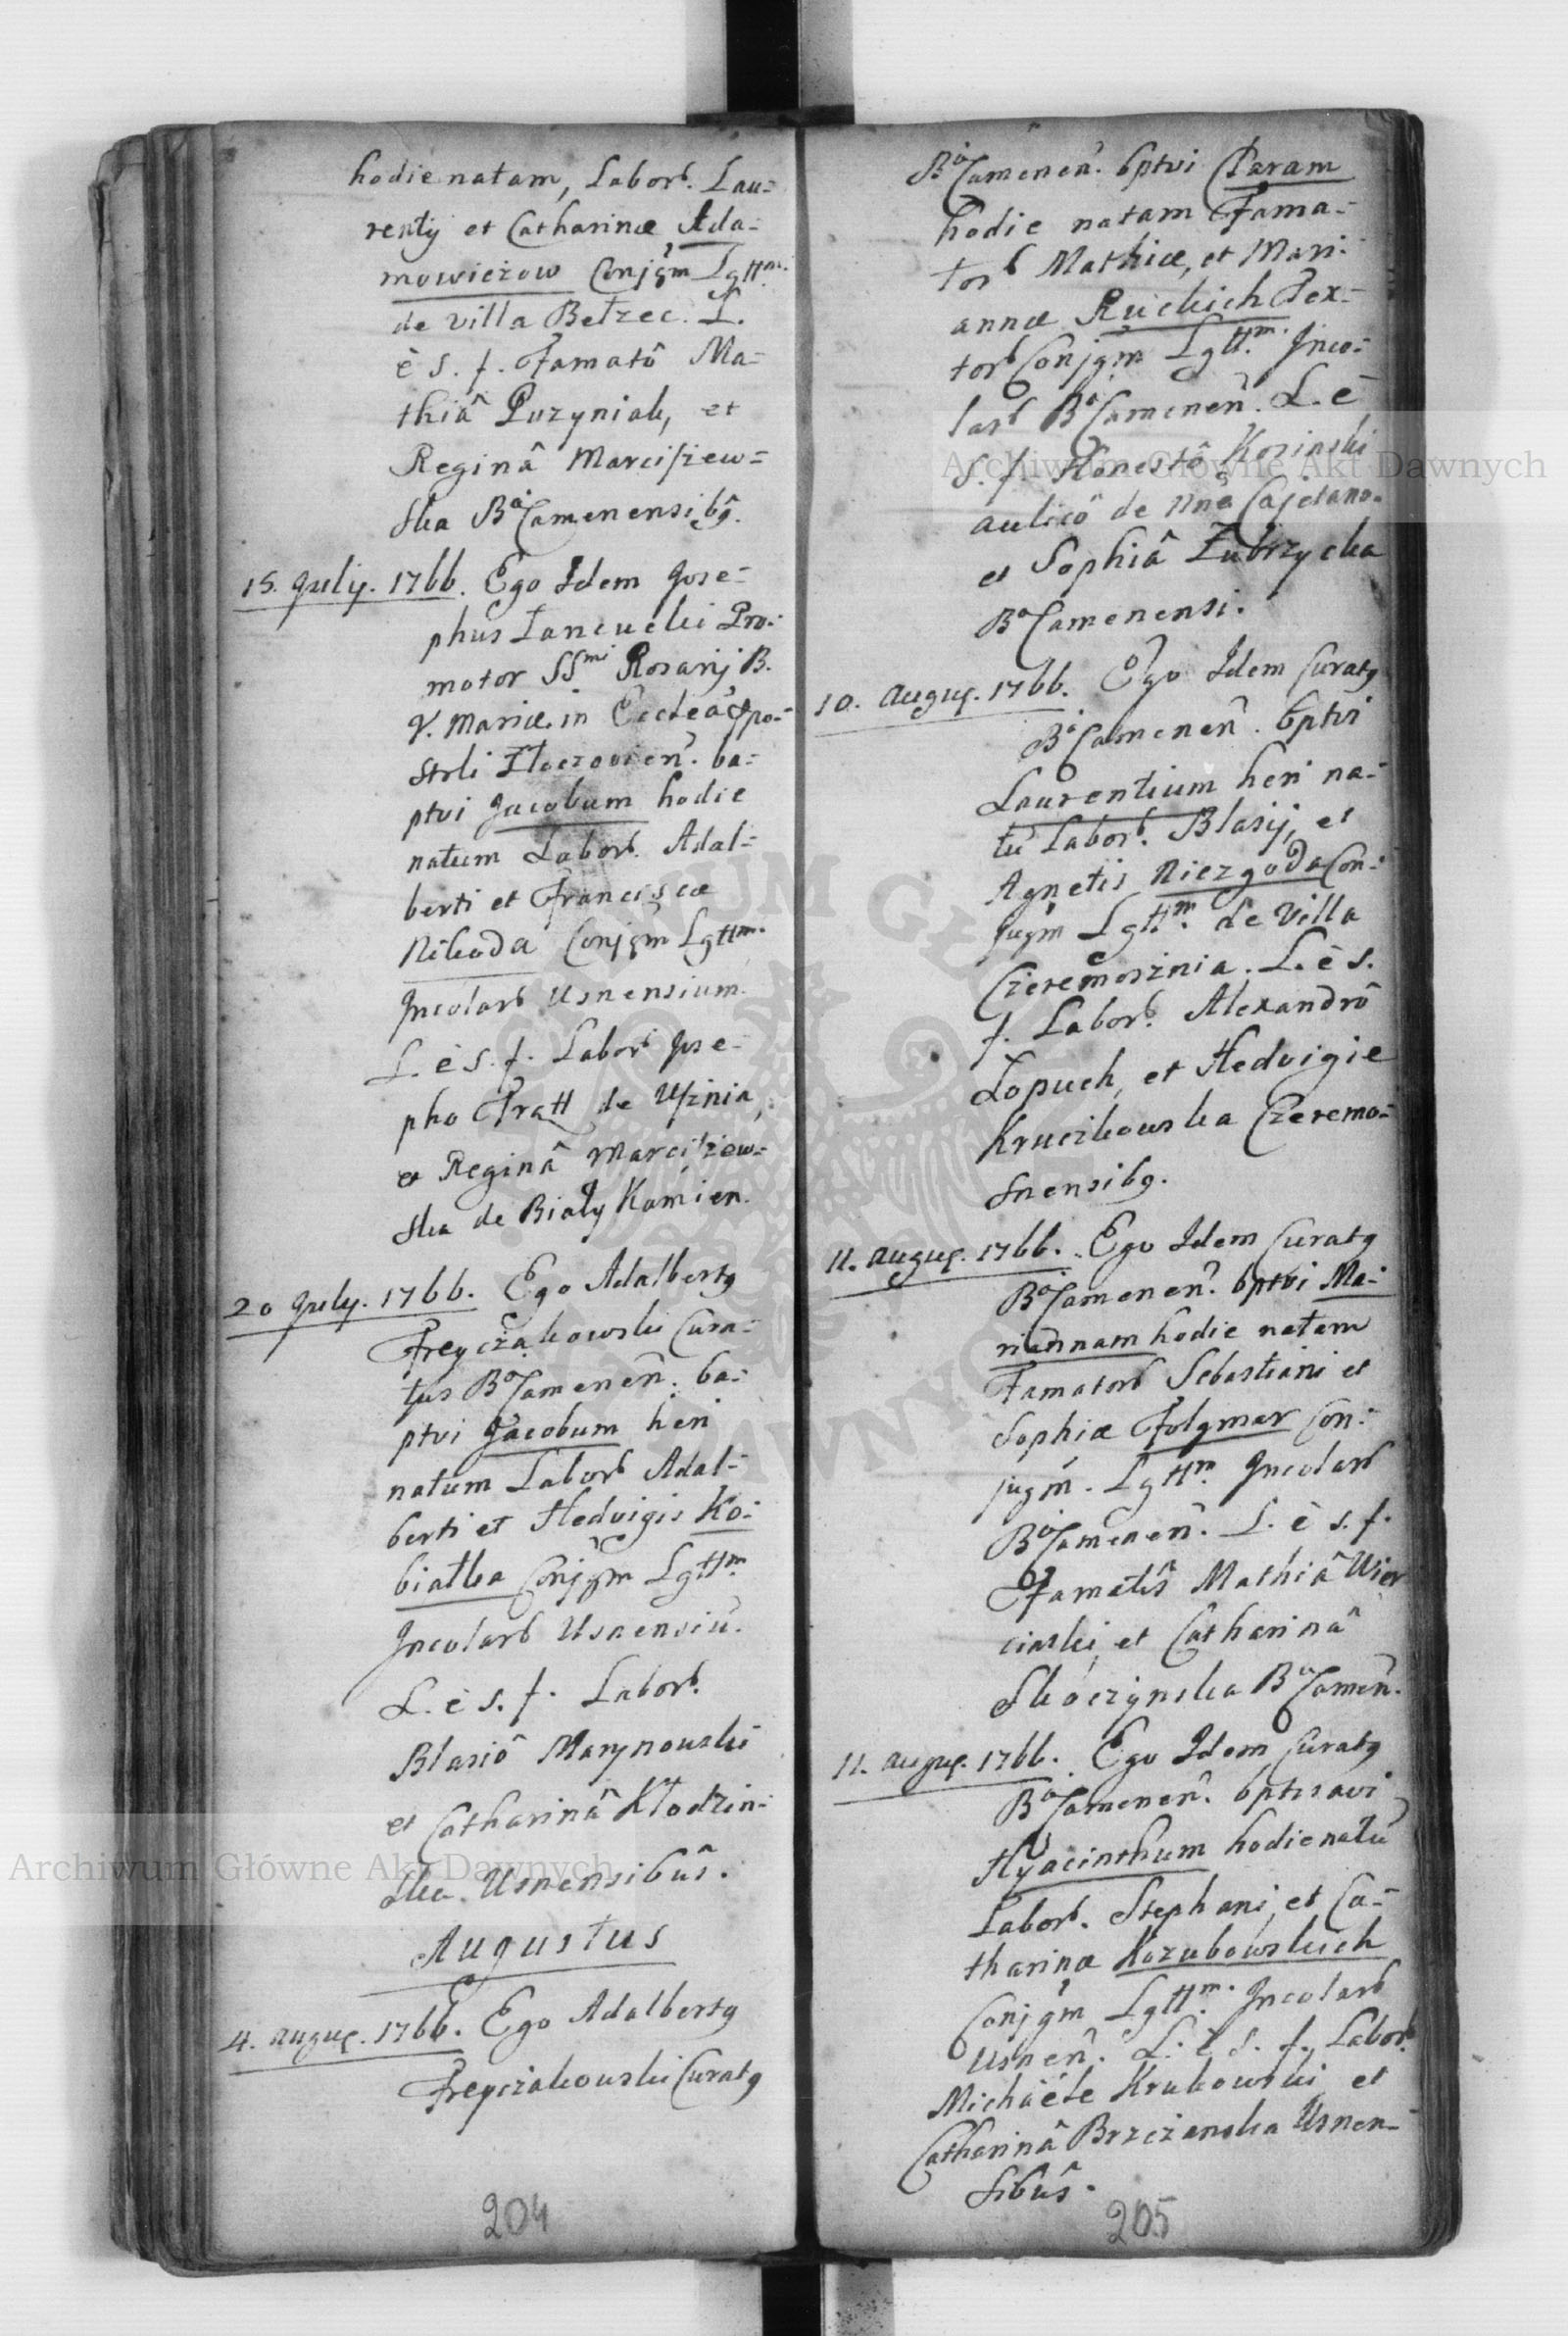 hodie natam, Laborb. Lau=
rentij et Catharinæ Ada=
mowiczow Conjgm Lgttm.
de villa Bełzec. L.
è S. f. Famatô Ma=
thiâ Puzyniak, et
Reginâ Marciszew=
ska Bà Camenensibg.
15. July. 1766. Ego Idem Jose=
phus Łancucki Pro=
motor SSmi Rosarij B.
V. Mariæ in Ecclea
strli Złoczovien. ba=
ptvi Jacobum hodie
natum Laborb. Adal=
berti et Franciscæ
Conjgm Lgttm.
Incolarb Usnensium.
L. è S. f. Laborb Jose=
pho Pratt de Usznia,
et Reginâ Marciszew=
ska de Biały Kamien.
20 July. 1766. Ego Adalbertg
Freyczakowski Cura=
tus Bà Camenen. ba=
ptvi Jacobum heri
natum Laborb Adal=
berti et Hedvigis Ko=
białka Conjgm Lgttm
Incolarb Usnensiu.
L. è S. f. Laborb.
Blasiô Marynowski
et Catharinâ Kłodzin=
ska Usnensibûs.
Augustus
4. Augug. 1766. Ego Adalbertg
Freyczakowski Curatg
204
Bà Camenen. bptvi Claram
hodie natam Fama=
torb Mathiæ, et Mari=
annæ Ruckich Tex=
torb Conjgm Lgttm. Inco=
larb Bà Camenen. L. è
S. f. Honestô Kosinski
aulicô de Cajetano.
et Sophiâ Zubrzycka
Bà Camenensi.
10. Augug. 1766. Ego Idem Curatg
Bà Camenen. bptvi
Laurentium heri na=
tu Laborb. Blasij, et
Agnetis Niezgoda Con=
jugm Lgttm. de Villa
Czeremosznia. L. è S.
f. Laborb. Alexandrô
Łopuch, et Hedvigie
Kruczkowska Czeremo=
snensibg.
11. Augug. 1766. Ego Idem Curatg
Bà Camenen. bptvi Ma=
riannam hodie natam
Famatorb Sebastiani et
Sophiæ Folgmar Con=
jugm. Lgttm. Incolarb
Bà Camenen. L. è S. f.
Famatis Mathiâ Wier
cinski, et Catharinâ
Skoczynska Bà Camen.
11. Augug. 1766. Ego Idem Curatg
Bà Camenen. bptisavi
Hyacinthum hodie natu
Laborb. Stephani, et Ca=
tharinæ Kozubowskich
Conjgm Lgttm. Incolarb
Usnen. L. è S. f. Laborb.
Michaële Krukowski et
Catharinâ Brzezanska Usnen=
sibûs.
205
Archiwum Główne Akt Dawnych
Archiwum Główne Akt Dawnych